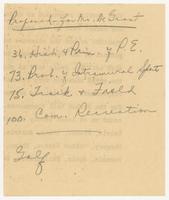 Proposed - for Mr. De Groat
36. Hist. & Prin. of P.E.
73. Prob. of Intramural Spts
75. Track & Field
100. Com. Recreation
Golf